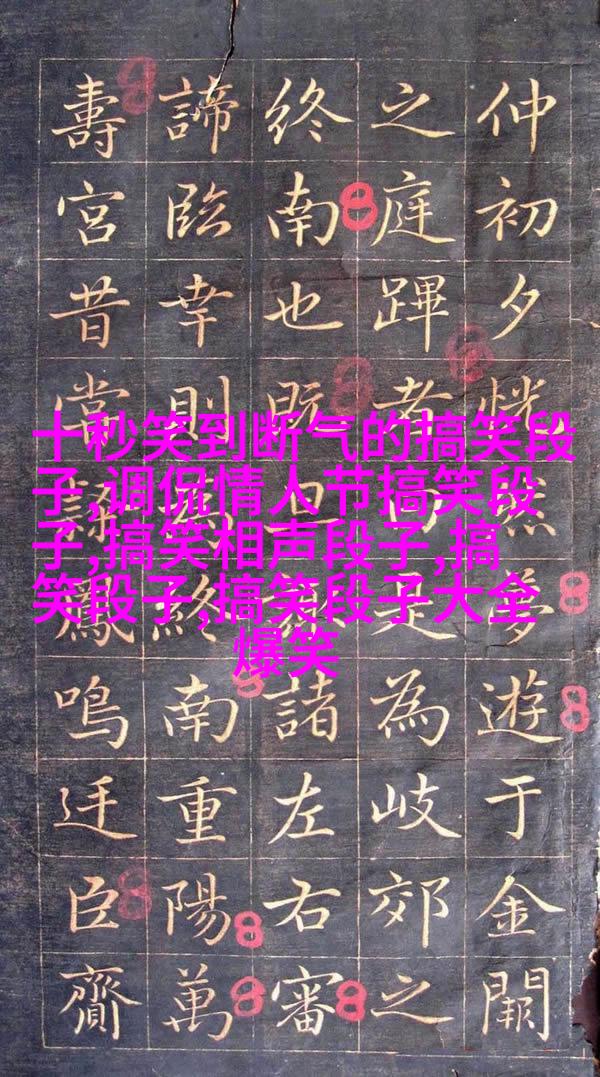 仲初夕恍然夢遊于金闕
之庭蹕者而是為岐郊之
終南也既旦諸左右審
諦臨幸則終南重陽萬
壽宮昔鳴迁臣齎
十秒笑到断气的搞笑段
子,调侃情人节搞笑段
子,搞笑相声段子,搞
笑段子,搞笑段子大全
爆笑